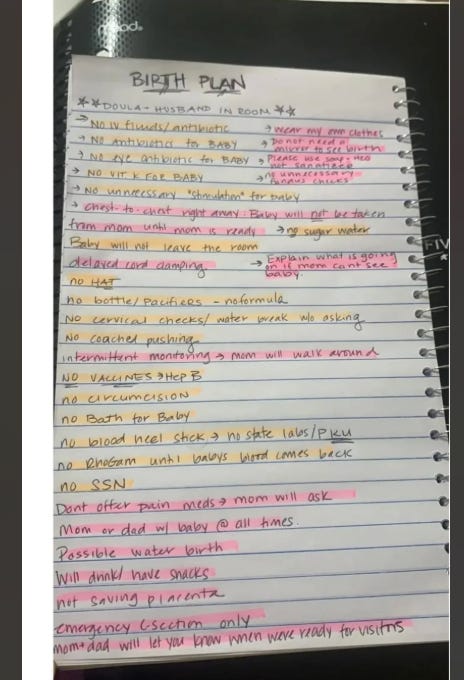 BIRTH PLAN
**DOULA + HUSBAND IN ROOM**
→ NO IV fluids/antibiotic → wear my own clothes
→ No Antibiotics for BABY → Do not need a mirror to see birth
→ No eye antibiotic for BABY → Please use soap + H2O not sanitizer
→ NO VIT K FOR BABY → no unnecessary fundus checks
→ No unnecessary "stimulation" for baby
→ chest-to-chest right away. Baby will not be taken
from mom until mom is ready → no sugar water
Baby will not leave the room
delayed cord clamping. → Explain what is going on if mom cant see baby.
no HAT
no bottle/Pacifiers - no formula
No cervical checks/water break w/o asking
No coached pushing
intermittent monitoring → mom will walk around
NO VACCINES → Hep B
no circumcision
no Bath for Baby
no blood heel stick → no state labs/PKU
no RhoGam until babys blood comes back
no SSN
Dont offer pain meds → mom will ask
Mom or dad w/ baby @ all times.
Possible water birth
Will drink/ have snacks
not saving placenta
emergency C-section only
mom + dad will let you know when we're ready for visitors